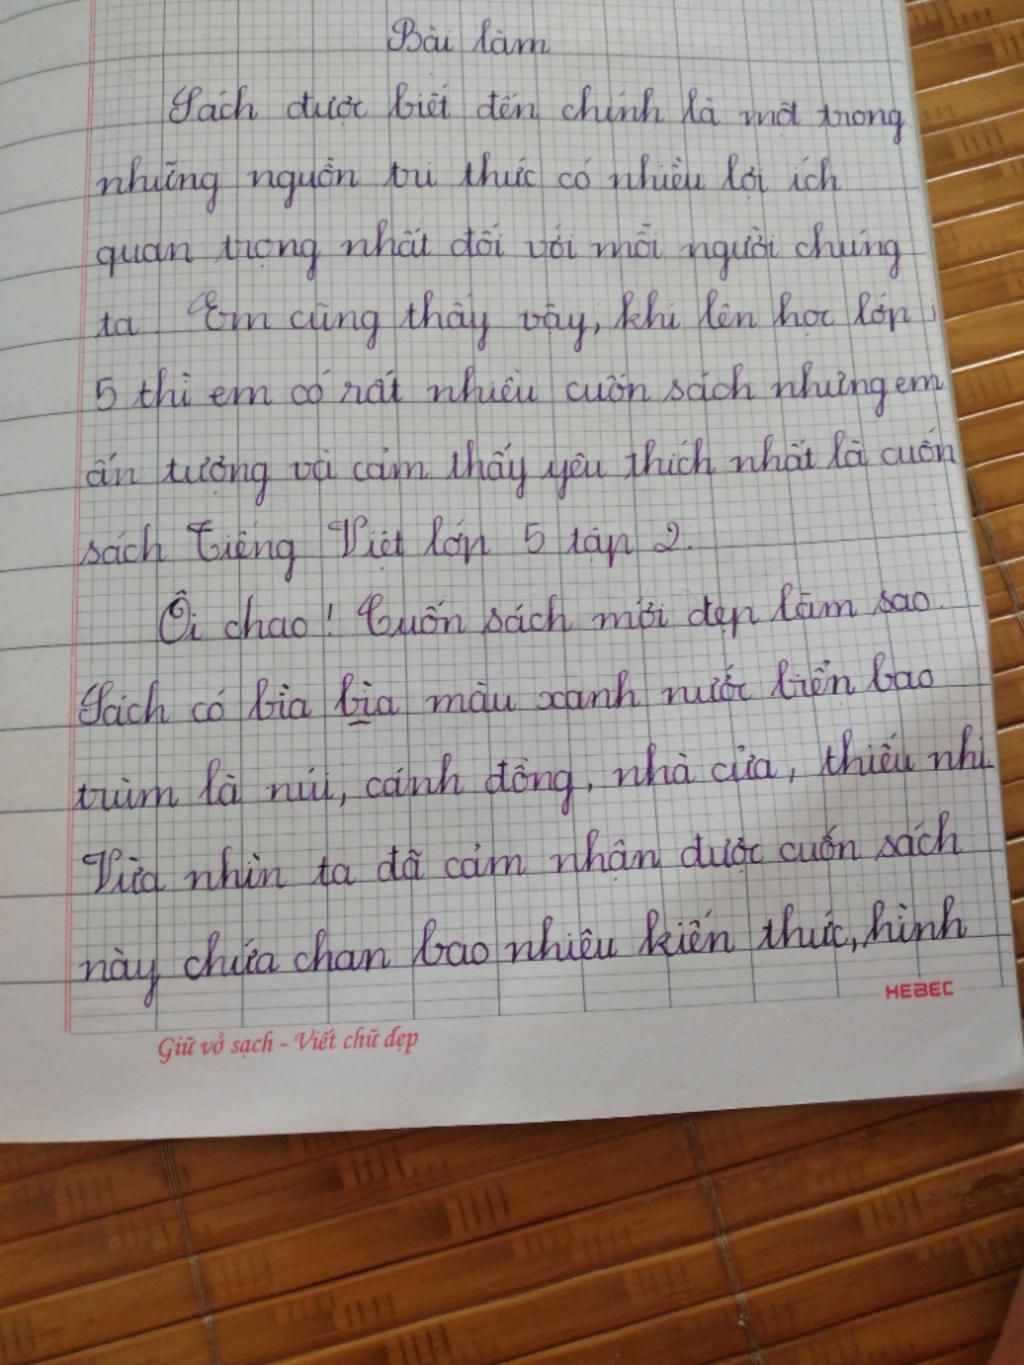 Bài làm
Sách được biết đến chính là một trong
những nguồn tri thức có nhiều lợi ích
quan trọng nhất đối với mỗi người chúng
ta. Em cũng thấy vậy, khi lên học lớp
5 thì em có rất nhiều cuốn sách nhưng em
ấn tượng và cảm thấy yêu thích nhất là cuốn
sách Tiếng Việt lớp 5 tập 2.
Ôi chao! Cuốn sách mới đẹp làm sao.
Sách có bìa bìa màu xanh nước biển bao
trùm là núi, cánh đồng, nhà cửa, thiếu nhi.
Vừa nhìn ta đã cảm nhận được cuốn sách
này chứa chan bao nhiêu kiến thức, hình
HEBEC
Giữ vở sạch - Viết chữ đẹp